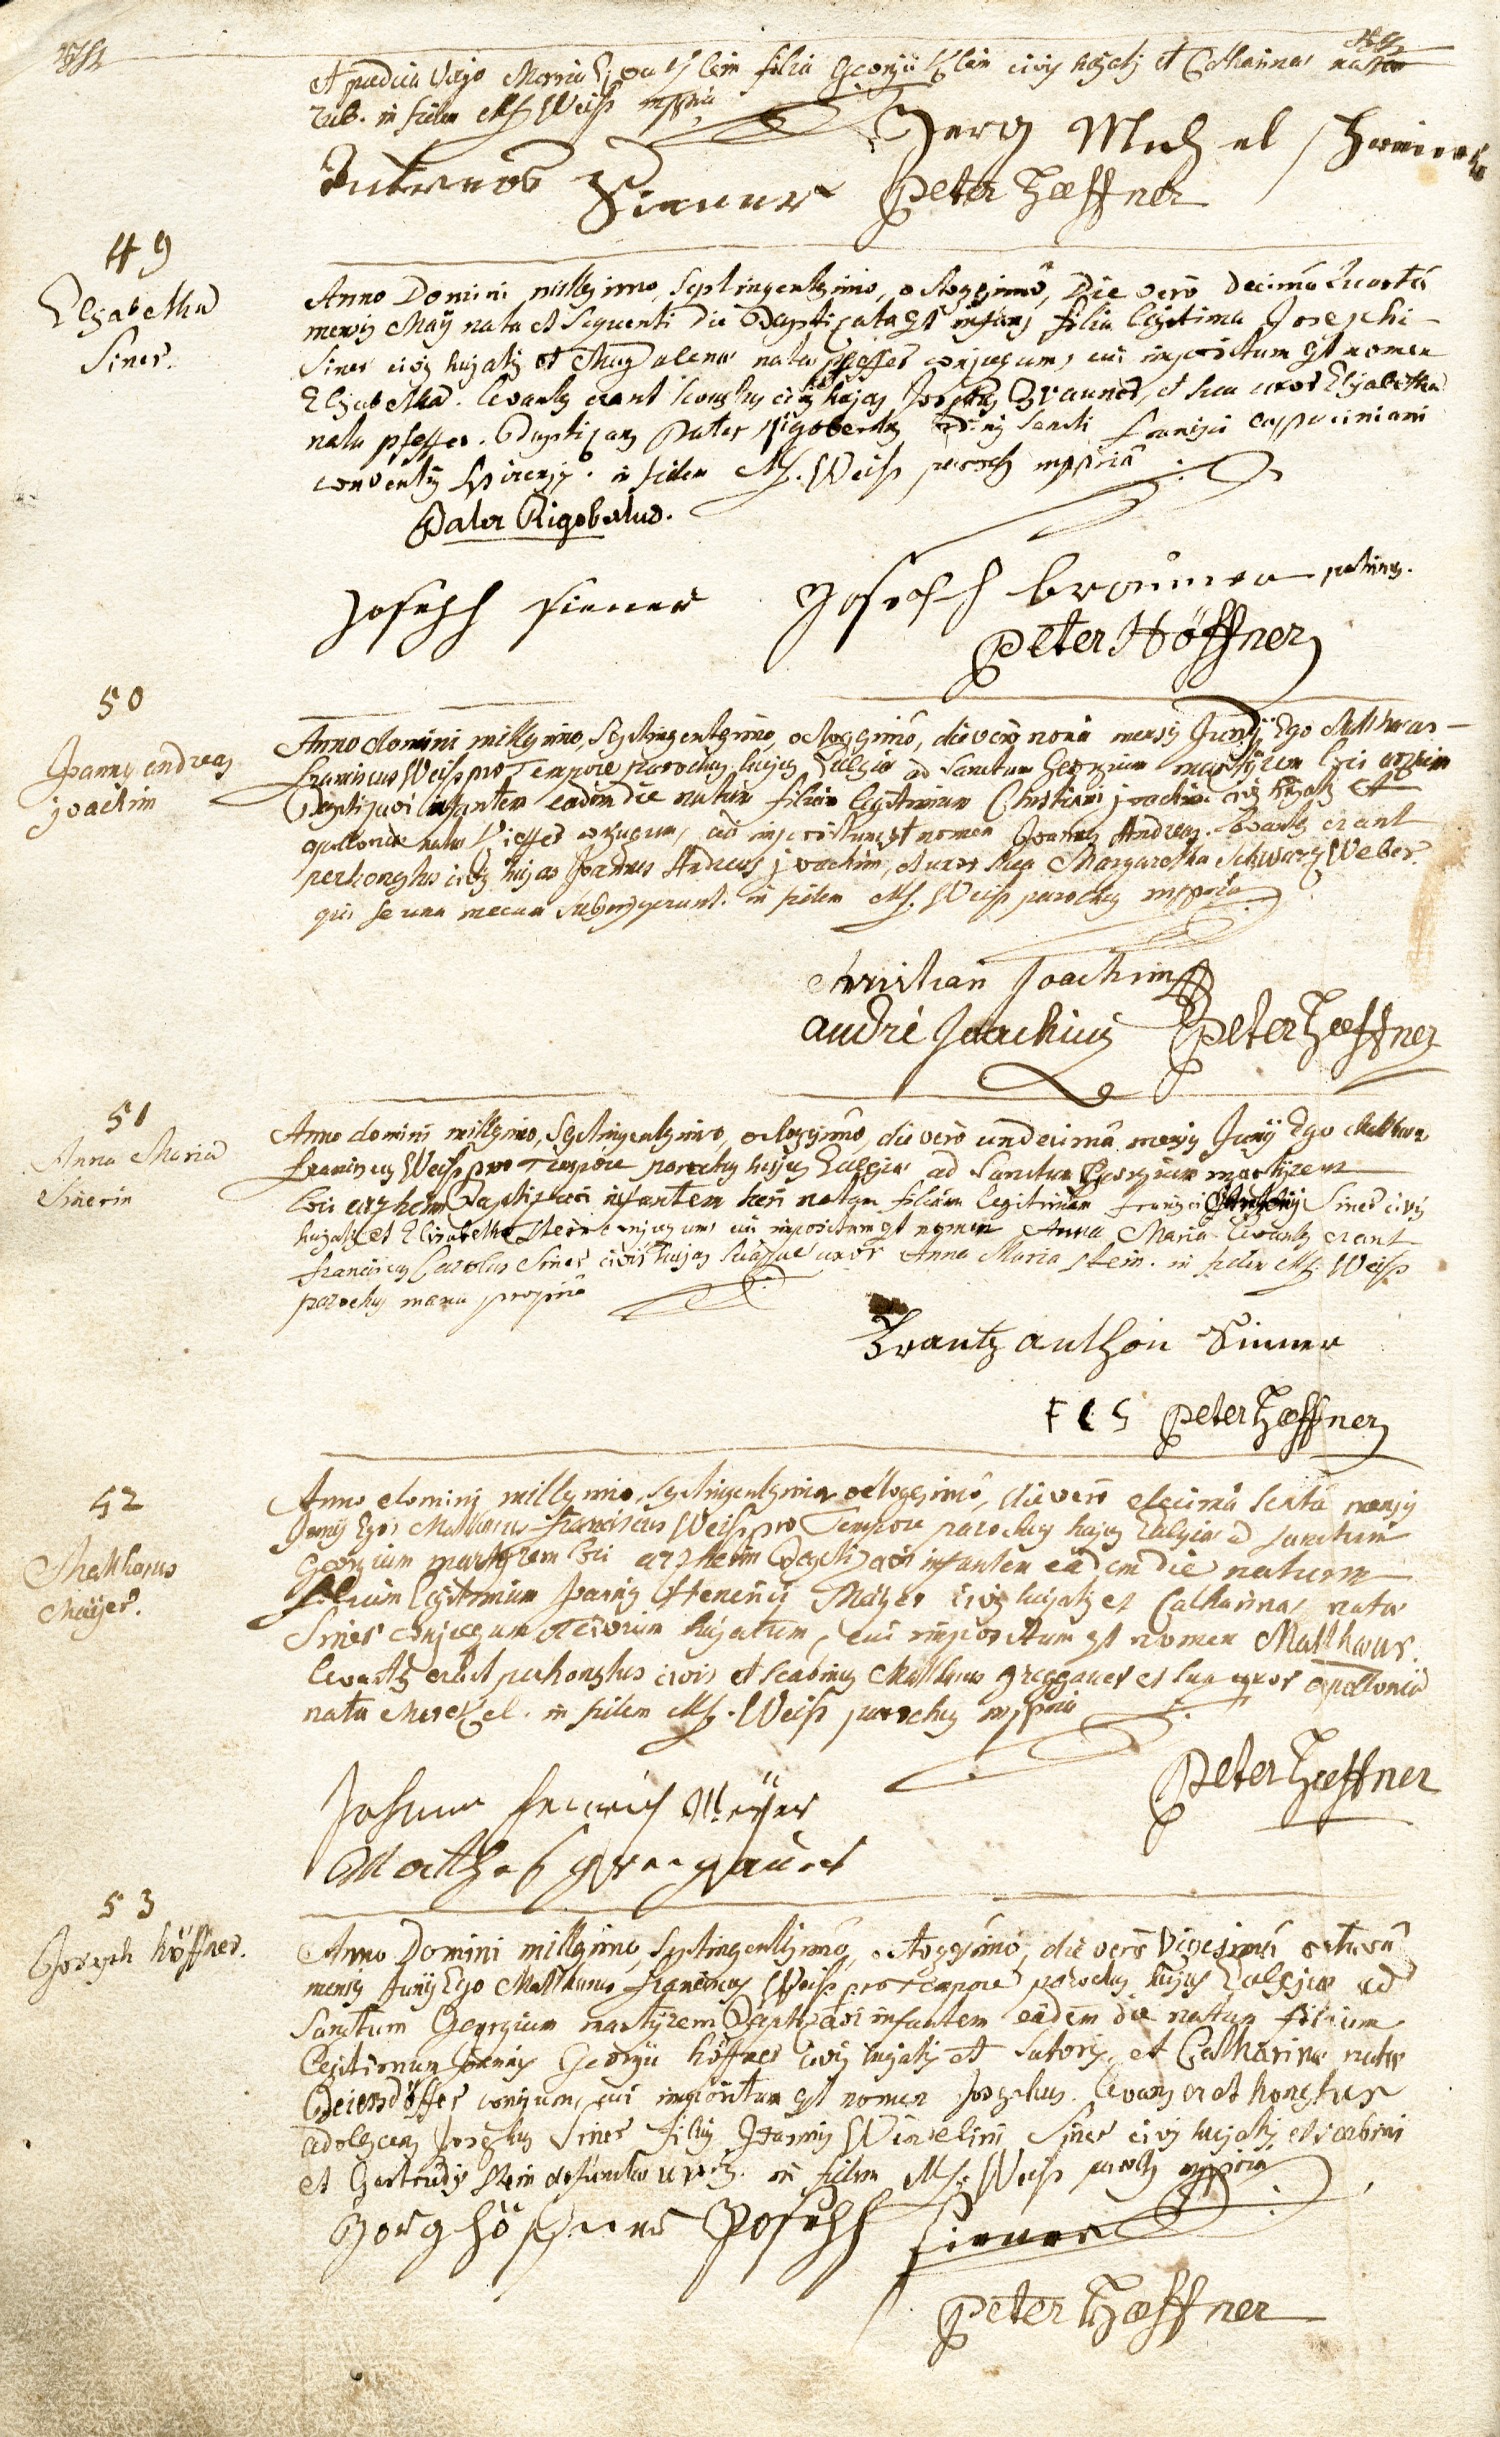 et pudica virgo Maria Eva Klein filia Georgii Klein civis hujatis et Catharinae natae
rub. in fidem Mf. Weiss mppria
Jerg Michel
Sinner Peter Hæffner
49
Elisabetha
Siner.
Anno Domini millesimo, septingentesimo, octogesimo, Die vero decimâ quartâ
mensis Maÿ nata et sequenti die Baptizata est infans filia legitima Josephi
Siner civis hujatis et Magdalenae natae pfeffer conjugum, cui impositum est nomen
Elisabetha. levantes erant honestus civis hujas Josephus Brauner, et sua uxor Elisabetha
nata pfeffer. Baptizans Pater Rigobertus ordinis sancti Francisci capuciniani
conventûs spirensis. in fidem Mf. Weiss paroch mppriâ
Pater Rigobertus.
Joseph Sinner Joseph brauner patrinus.
Peter Höffner
50
Joannes andreas
joachim
Anno domini millesimo, septingentesimo, octogesimô, die verò nonâ mensis Junÿ Ego Matthaeus
Franciscus Weiss pro Tempore parochus hujus Ecclesiae ad Sanctum Georgium martÿrem loci arzheim
Baptizavi infantem eadem die natum filium legitimum Christiani joachim civis hujatis et
apolloniae natae Kieffer conjugum, cui impositum est nomen Joannes Andreas. levantes erant
perhonestus civis hujas Joannes Andreas joachim, et uxor sua Margaretha Schwarzweber.
qui se una mecum subscripserunt. in fidem Mf. Weiss parochus mppriâ
christian Joachim
andré Joachim Peter Hæffner
51
Anna Maria
Sinerin
Anno domini millesimo, septingentesimo, octogesimô, die verò undecimâ mensis Junÿ Ego Matthaeus
Franciscus Weiss pro Tempore parochus hujus Ecclesiae ad Sanctum Georgium martÿrem
loci arzheim Baptizavi infantem heri natam filiam legitimam francisci Antonÿ Siner civis
hujatis et Elisabetha conjugum cui impositum est nomen Anna Maria levantes erant
franciscus Carolus Siner civis hujas suaque uxor Anna Maria stein. in fidem Mf. Weiss
parochus manu propriâ
Frantz anthon Sinner
F C S Peter Hæffner
52
Matthaeus
Maÿer.
Anno domini millesimo, septingentesimo octogesimô, die verò decimâ sextâ mensis
Junÿ Ego Matthaeus Franciscus Weiss pro Tempore parochus hujus Ecclesiae ad sanctum
Georgium martÿrem loci arzheim Baptizavi infantem eâdem die natum
filium legitimum Joannis Henrici Maÿer civis hujatis et Catharinae natae
Siner conjugum et civium hujatum, cui impositum est nomen Matthaeus.
levantes erant perhonestus civis et scabinus Matthaeus greggauer et sua uxor apollonia
nata Merckel. in fidem Mf. Weiss parochus mppriâ
Peter Hæffner
Johann Henrich Meÿer
Mathes
53
Joseph höffner.
Anno Domini millesimo, septingentesimô, octogesimô, die verò vigesimâ octavâ
mensis Junÿ Ego Matthaeus Franciscus Weiss pro tempore parochus hujus Ecclesiae ad
Sanctum Georgium martÿrem Baptizavi infantem eâdem die natum filium
legitimum Joannis Georgii höffner civis hujatis et sutoris, et Catharinae natae
conjugum, cui impositum est nomen Josephus. levans erat honestus
adolescens Josephus Siner filius Joannis Wendelini Siner civis hujatis et scabini
et Gertrudis stein defunctae uxoris. in fidem Mf. Weiss paroch mppriâ
Görg höffner Joseph Sinner
Peter Hæffner